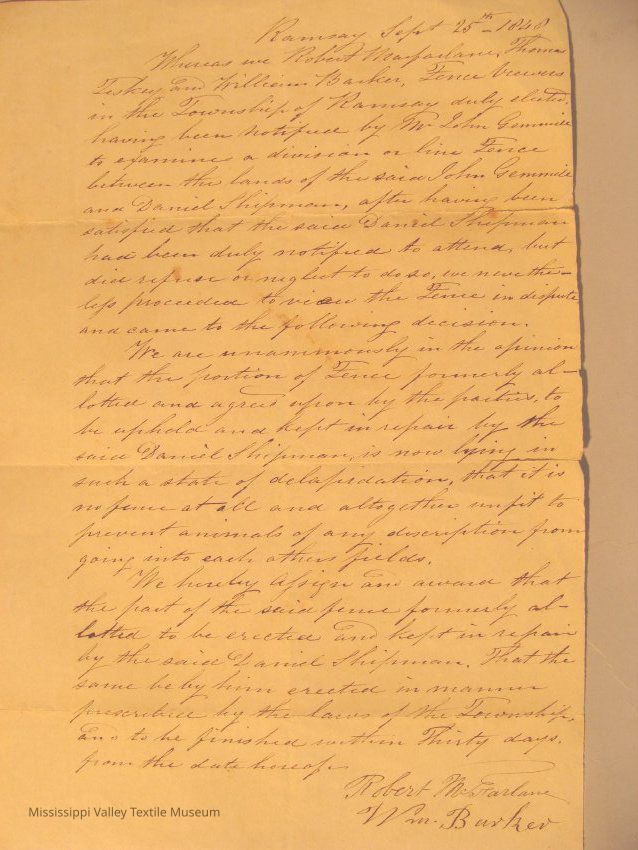 Ramsay Sept 25th 1848
Whereas we Robert Macfarlane, Thomas
Teskey and William Barker, Fence viewers
in the Township of Ramsay duly elected,
having been notified by Mr John Gemmill
to examine a division or line Fence
between the lands of the said John Gemmill
and Daniel Shipman, after having been
satisfied that the said Daniel Shipman
had been duly notified to attend, but
did refuse or neglect to do so, we neverthe-
less proceeded to view the Fence in dispute
and came to the following decision.
We are unanimously in the opinion
that the portion of Fence formerly al-
lotted and agreed upon by the parties, to
be uphold and kept in repair by the
said Daniel Shipman, is now lying in
such a state of delapidation, that it is
no fence at all and altogether unfit to
prevent animals of any discription from
going into each others fields.
We hereby assign and award that
the part of the said fence formerly al-
lotted to be erected and kept in repair
by the said Daniel Shipman. That the
same be by him erected in manner
prescribed by the laws of the Township,
and to be finished within Thirty days,
from the date hereof.
Robert McFarlane
Wm. Barker
Mississippi Valley Textile Museum